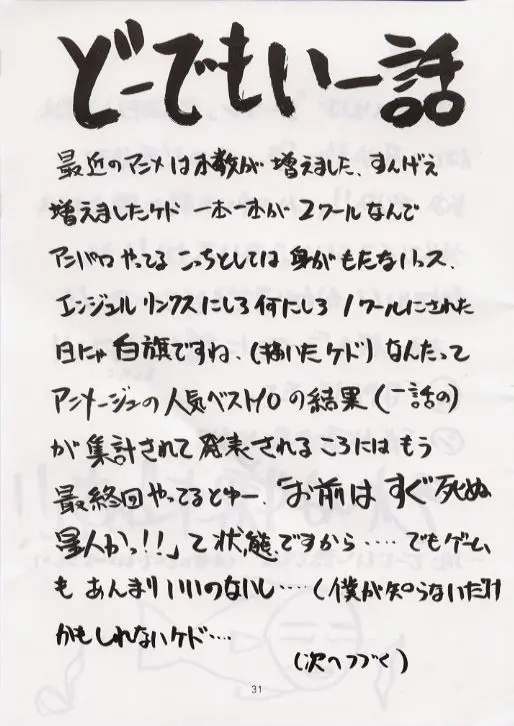 どーでもいー話
最近のアニメは本数が増えました、すんげえ
増えましたケド 一本一本が2クールなんで
アンパロやってる こっちとしては身がもたないっス、
エンジェルリンクスにしろ何にしろ1クールにされた
日にゃ白旗ですね、(描いたケド)なんたって
アニメージュの人気ベスト10の結果(一話の)
が集計されて発表されるころにはもう
最終回やってるとゆー、「お前はすぐ死ぬ
星人かっ!!」て状態ですから‥‥でもゲーム
もあんまりいいのないし‥‥(僕が知らないだけ
かもしれないケド‥‥
(次へつづく)
31